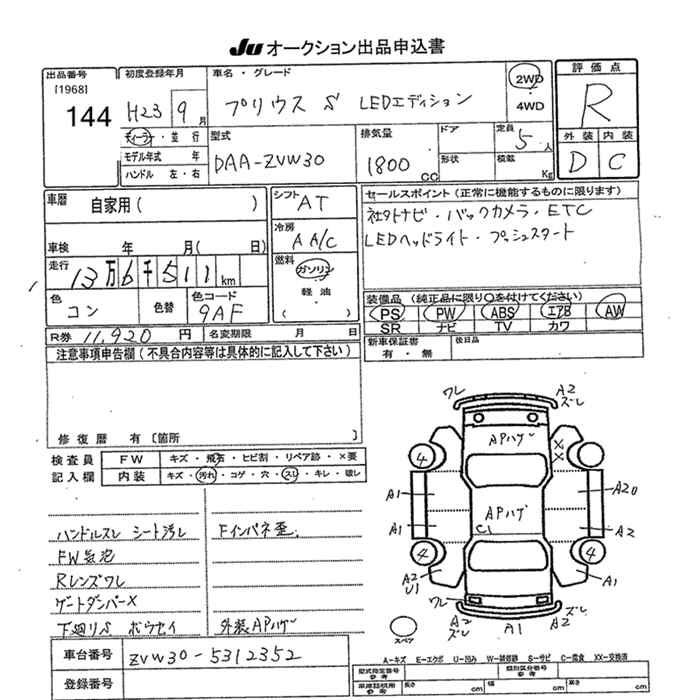 JU オークション出品申込書
出品番号 初度登録年月 車名・グレード 評価点
[1968] 144 H23 9月 プリウス S LEDエディション 2WD 4WD R
外装 内装
D C
ディーラー・並行 型式 排気量 ドア 定員 5人
モデル年式 年 DAA-ZVW30 1800cc 形状 積載 Kg
ハンドル 左・右
車暦 自家用( ) シフト AT セールスポイント(正常に機能するものに限ります)
社外ナビ・バックカメラ・ETC
冷房 AA/C LEDヘッドライト・プッシュスタート
車検 年 月(日)
走行 13万6千511km 燃料 ガソリン 軽油 ( )
色 コン 色替 色コード 9AF
装備品(純正品に限り○を付けてください)
PS PW ABS エアB AW
SR ナビ TV カワ
R券 11,920円 名変期限 月 日 新車保証書 有・無 後日品
注意事項申告欄(不具合内容等は具体的に記入して下さい)
修復歴 有〔箇所 〕
検査員 FW キズ・飛石・ヒビ割・リペア跡・×要
記入欄 内装 キズ・汚れ・コゲ・穴・スレ・キレ・破レ
ハンドルスレ シート汚レ Fインパネ歪
FW気泡
Rレンズワレ
ゲートダンパーX
下廻りS ボウセイ 外装APハゲ
ワレ A2 ズレ
APハゲ
X X
4 4
A1 A20
APハゲ
C1
A1 A2
4 4
A2 U1 A1
ワレ ズレ
A2 ズレ A1 A2
スペア
車台番号 ZVW30-5312352
登録番号
A-キズ E-エクボ U-凹み W-補修跡 S-サビ C-腐食 XX-交換済
型式指定番号 参考 類別区分番号 参考
車庫証明用 参考 長さ cm 幅 cm 高さ cm